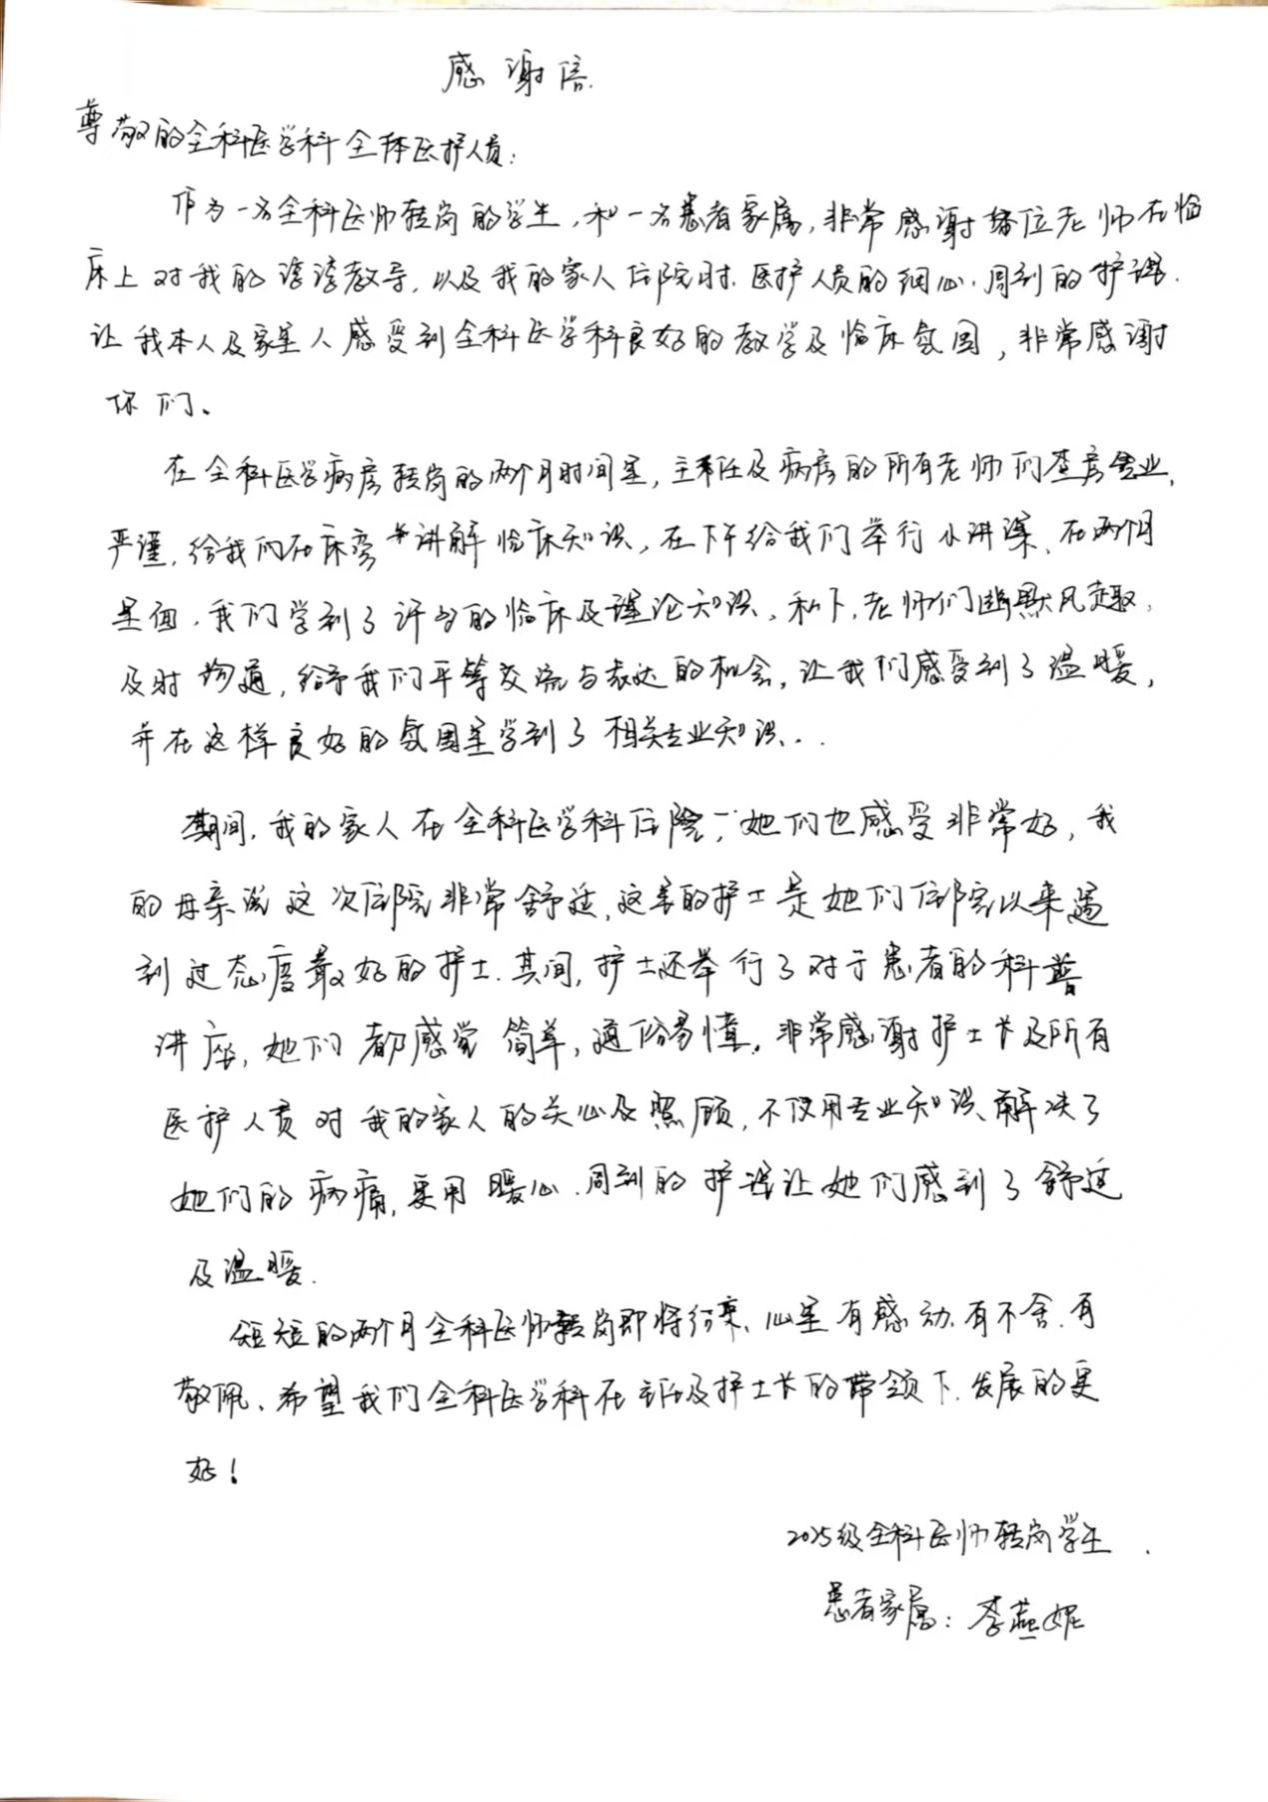 感谢信
尊敬的全科医学科全体医护人员：
作为一名全科医师转岗的学生，和一名患者家属，非常感谢诸位老师在临
床上对我的谆谆教导，以及我的家人住院时，医护人员的细心、周到的护理，
让我本人及家里人感受到全科医学科良好的教学及临床氛围，非常感谢
你们。
在全科医学病房转岗的两个月时间里，主任及病房的所有老师们查房专业、
严谨，给我们在床旁讲解临床知识，在下午给我们举行小讲课，在两个月
里面，我们学到了许多的临床及理论知识，私下，老师们幽默风趣，
及时沟通，给予我们平等交流与表达的机会，让我们感受到了温暖，
并在这样良好的氛围里学到了相关专业知识..
期间，我的家人在全科医学科住院，她们也感受非常好，我
的母亲说这次住院非常舒适，这里的护士是她们住院以来遇
到过态度最好的护士.其间，护士还举行了对于患者的科普
讲座，她们都感觉简单，通俗易懂。非常感谢护士长及所有
医护人员对我的家人的关心及照顾，不仅用专业知识解决了
她们的病痛，更用暖心、周到的护理让她们感到了舒适
及温暖.
短短的两个月全科医师转岗即将结束，心里有感动.有不舍.有
敬佩、希望我们全科医学科在主任及护士长的带领下.发展的更
好！
2025级全科医师转岗学生
患者家属：李燕妮